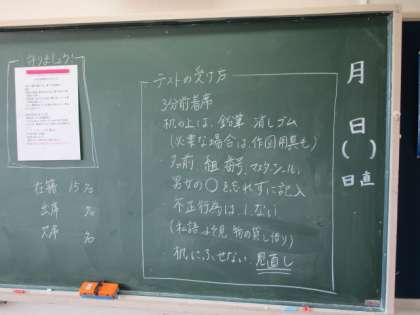 守りましょう!
在籍 15名
出席 名
欠席 名
テストの受け方
3分前着席
・机の上は、鉛筆 消しゴム
(必要な場合は、作図用具も)
・名前、組 番号、マスタンバー、
男女の○を忘れずに記入
・不正行為は、しない
(私語 よそ見 物の貸し借り)
・机にふせない 見直し
月
日
( )
日直